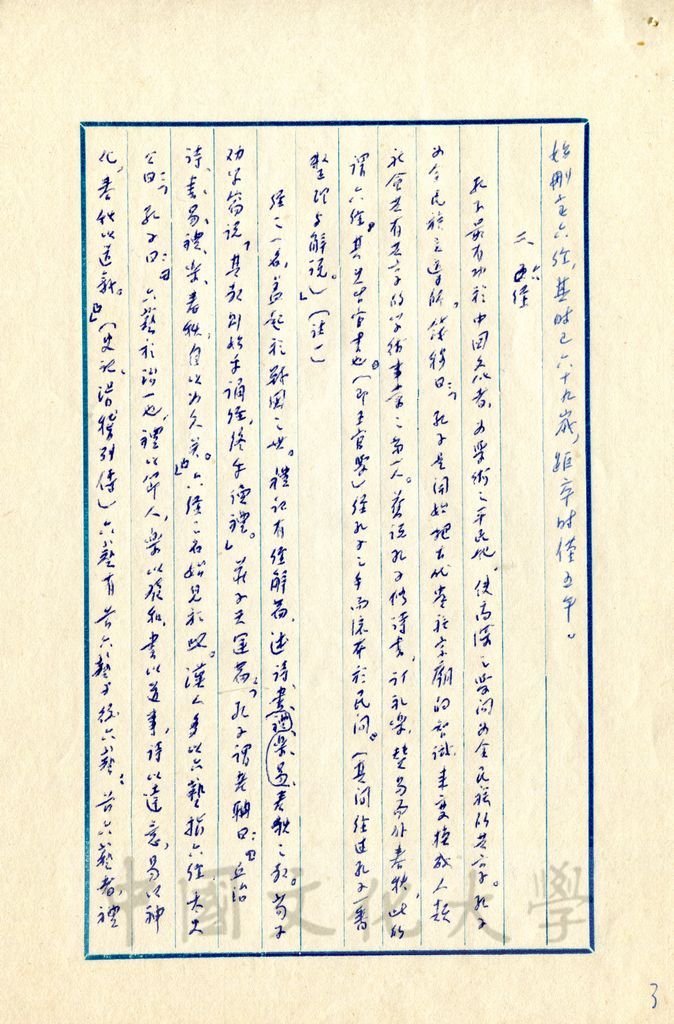 始刪定六經，其時已六十九歲，距卒時僅五年。
二 六經
孔子最有功於中國文化者，為學術之平民化，使高深之學問為全民族所共享。孔子
為全民族之導師，錢穆曰：「孔子是開始把古代貴族宗廟的智識來變換成人類
社會共有共享的學術事業之第一人。舊說孔子修詩書，訂禮樂，贊易而作春秋，此所
謂六經。其先皆官書也（即王官學）經孔子之手而流布於民間。（其間經過孔子一番
整理與解說。）」（註一）
經之一名，蓋起於戰國之世。禮記有經解篇，述詩、書、禮、樂、易、春秋之教。荀子
勸學篇說「其數則始乎誦經，終乎讀禮。」莊子天運篇：「孔子謂老聃曰：『丘治
詩、書、易、禮、樂、春秋，自以為久矣。』」六經之名始見於此。漢人多以六藝指六經，太史
公曰：「孔子曰：『六藝於治一也，禮以節人，樂以發和，書以道事，詩以達意，易以神
化，春秋以道義。』」（史記、滑稽列傳）六藝有前六藝與後六藝：前六藝者，禮
中國文化大學
3